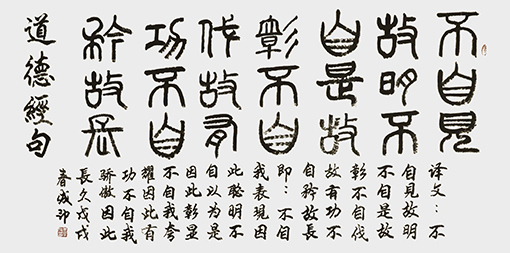 不自見
故明不
自是故
彰不自
伐故有
功不自
矜故長
道德經句
译文：不
自見故明
不自是故
彰不自伐
故有功不
自矜故長
即：不自
我表現因
此聰明不
自以为是
因此彰显
不自我夸
耀因此有
功不自我
骄傲因此
長久戊戌
春